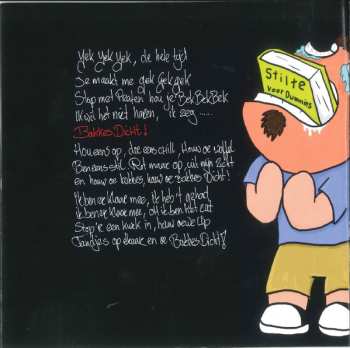 Yek Yek Yek, de hele tijd
Je maakt me gek gek gek
Stop met Praten hou je Bek Bek Bek
Ik wil het niet horen, 'k zeg ......
Bakkes Dicht!
Hou eens op, doe eens chill, Hou je waffel
Ben eens stil, Rot maar op, uit mijn zicht
en hou je bakkes, hou je Bakkes Dicht!
Ik ben er klaar mee, ik heb't gehad
Ik ben er klaar mee, oh ik ben het zat
Stop je een kurk in, hou je
Tandjes op elkaar en je Bakkes Dicht!
Stilte
voor Dummies